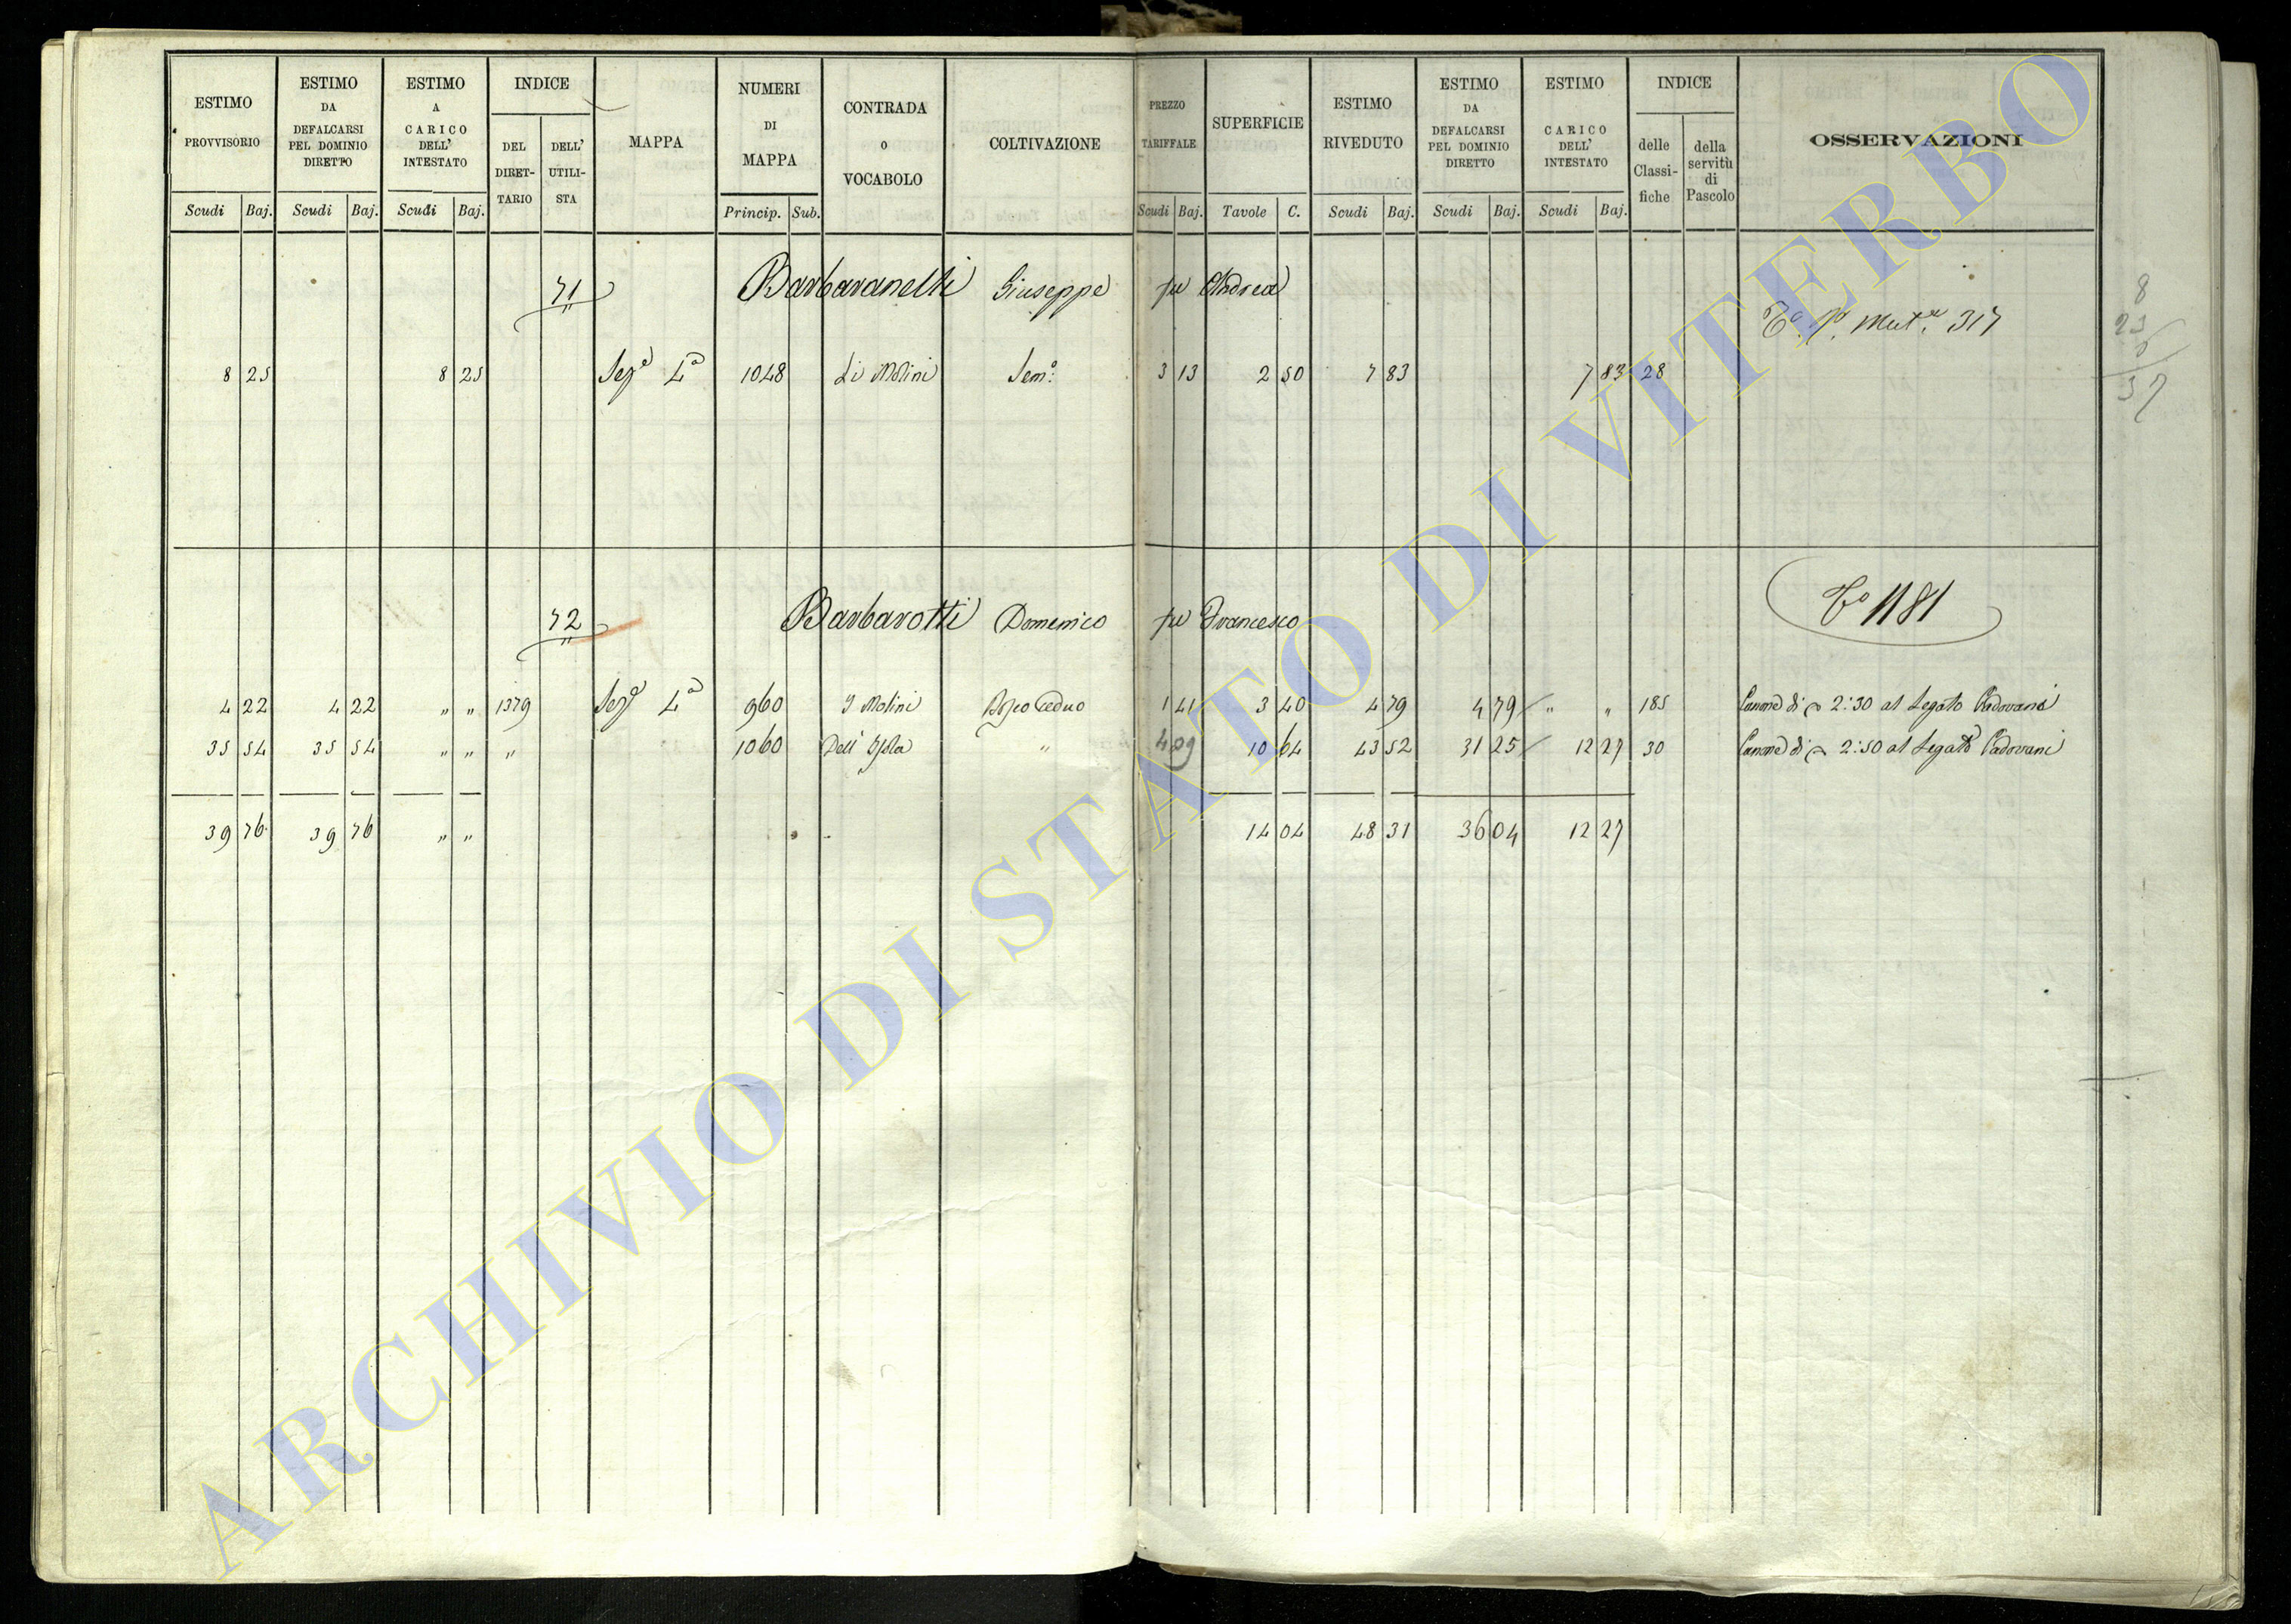 ESTIMO PROVVISORIO ESTIMO DA DEFALCARSI PEL DOMINIO DIRETTO ESTIMO A CARICO DELL' INTESTATO INDICE DEL DIRET-TARIO DELL' UTILI-STA MAPPA NUMERI DI MAPPA CONTRADA O VOCABOLO COLTIVAZIONE PREZZO TARIFFALE SUPERFICIE ESTIMO RIVEDUTO ESTIMO DA DEFALCARSI PEL DOMINIO DIRETTO ESTIMO CARICO DELL' INTESTATO INDICE delle Classi-fiche della servitù di Pascolo OSSERVAZIONI
Scudi Baj. Scudi Baj. Scudi Baj. Princip. Sub. Scudi Baj. Tavole C. Scudi Baj. Scudi Baj. Scudi Baj.
71 Barbaranelli Giuseppe fu Andrea
317
8 25 8 25 Seze 4a 1048 Li Molini Semo: 3 13 2 50 7 83 7 83 28
8
23
37
72 Barbarotti Domenico fu Francesco To 1181
4 22 4 22 " " 1379 Seze 4a 960 I Molini Bosco Ceduo 1 41 3 40 4 79 4 79 " " 185 Canone di 2:30 al Legato Padovani
35 54 35 54 " " " 1060 Dell' Isola " 4 09 10 64 43 52 31 25 12 27 30 Canone di 2:50 al Legato Padovani
39 76 39 76 " " 14 04 48 31 36 04 12 27
ARCHIVIO DI STATO DI VITERBO